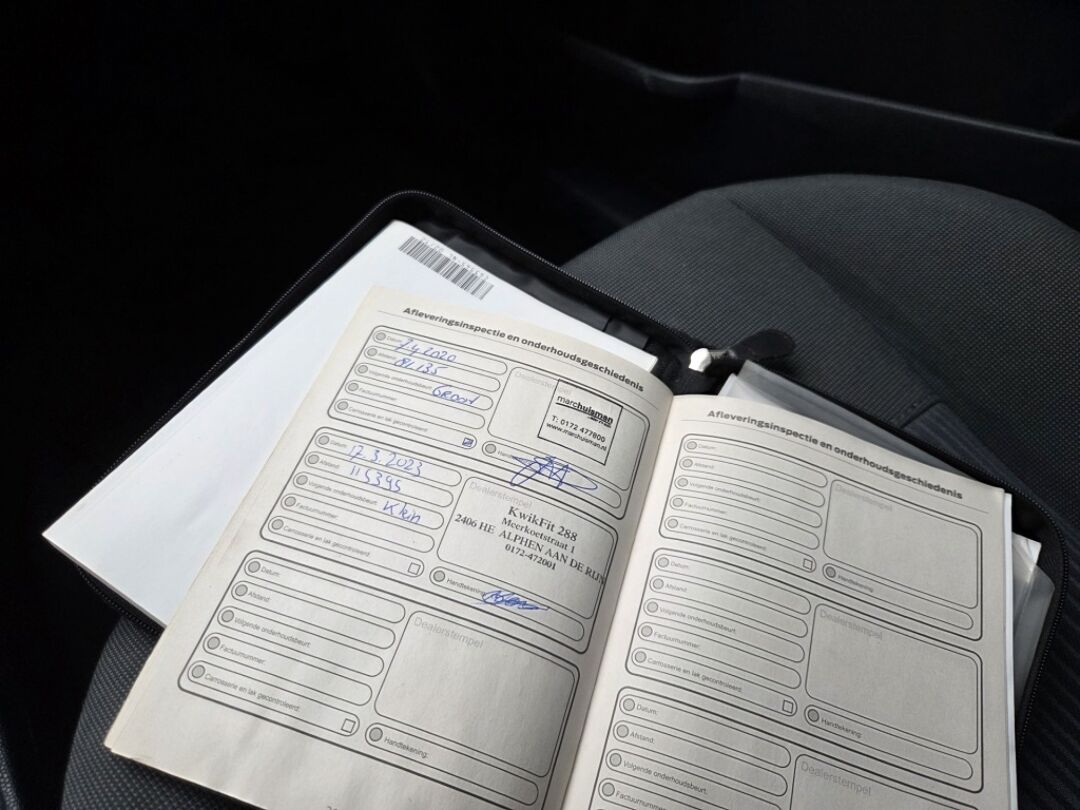 Afleveringsinspectie en onderhoudsgeschiedenis
Datum: 7.4.2020
Afstand:
Volgende onderhoudsbeurt: GROOT
Factuurnummer:
Carrosserie en lak gecontroleerd:
Dealerstempel
marchuisman
T: 0172 477800
www.marchuisman.nl
Datum: 17.3.2023
Afstand: 115395
Volgende onderhoudsbeurt: Klein
Factuurnummer:
Carrosserie en lak gecontroleerd:
Dealerstempel
KwikFit 288
Meerkoetstraat 1
2406 HE ALPHEN AAN DE RIJN
0172-472001
Handtekening:
Datum:
Afstand:
Volgende onderhoudsbeurt:
Factuurnummer:
Carrosserie en lak gecontroleerd:
Dealerstempel
Handtekening:
Afleveringsinspectie en onderhoudsgeschiedenis
Datum:
Afstand:
Volgende onderhoudsbeurt:
Factuurnummer:
Carrosserie en lak gecontroleerd:
Dealerstempel
Handtekening:
Datum:
Afstand:
Volgende onderhoudsbeurt:
Factuurnummer:
Carrosserie en lak gecontroleerd:
Dealerstempel
Handtekening:
Datum:
Afstand:
Volgende onderhoudsbeurt:
Factuurnummer:
Dealerstempel